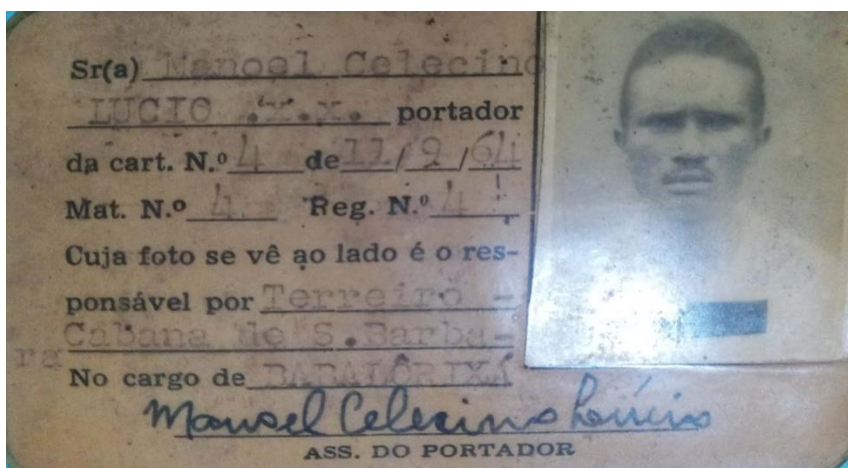 Sr(a) Manoel Celecino
LUCIO .x.x. portador
da cart. N.º 4 de 11/9/64
Mat. N.º 4 Reg. N.º 4
Cuja foto se vê ao lado é o res-
ponsável por Terreiro -
Cabana de S.Barba-
ra
No cargo de BABALÔRIXÁ
Manoel Celecino
ASS. DO PORTADOR